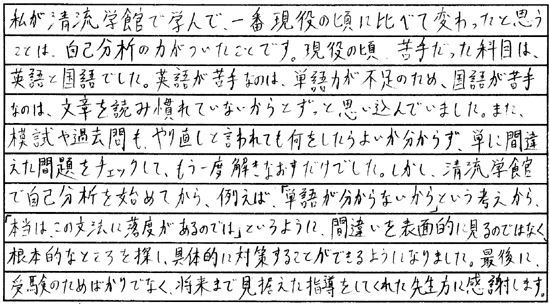 私が清流学館で学んで、一番現役の頃に比べて変わったと思う
ことは、自己分析の力がついたことです。現役の頃、苦手だった科目は、
英語と国語でした。英語が苦手なのは、単語力が不足のため、国語が苦手
なのは、文章を読み慣れていないからとずっと思い込んでいました。また、
模試や過去問も、やり直しと言われても何をしたらよいか分からず、単に間違
えた問題をチェックして、もう一度解きなおすだけでした。しかし、清流学館
で自己分析を始めてから、例えば、「単語が分からないから」という考えから、
「本当は、この文法に落度があるのでは」というように、間違いを表面的に見るのではなく、
根本的なところを探し、具体的に対策することができるようになりました。最後に、
受験のためばかりでなく、将来まで見据えた指導をしてくれた先生方に感謝します。